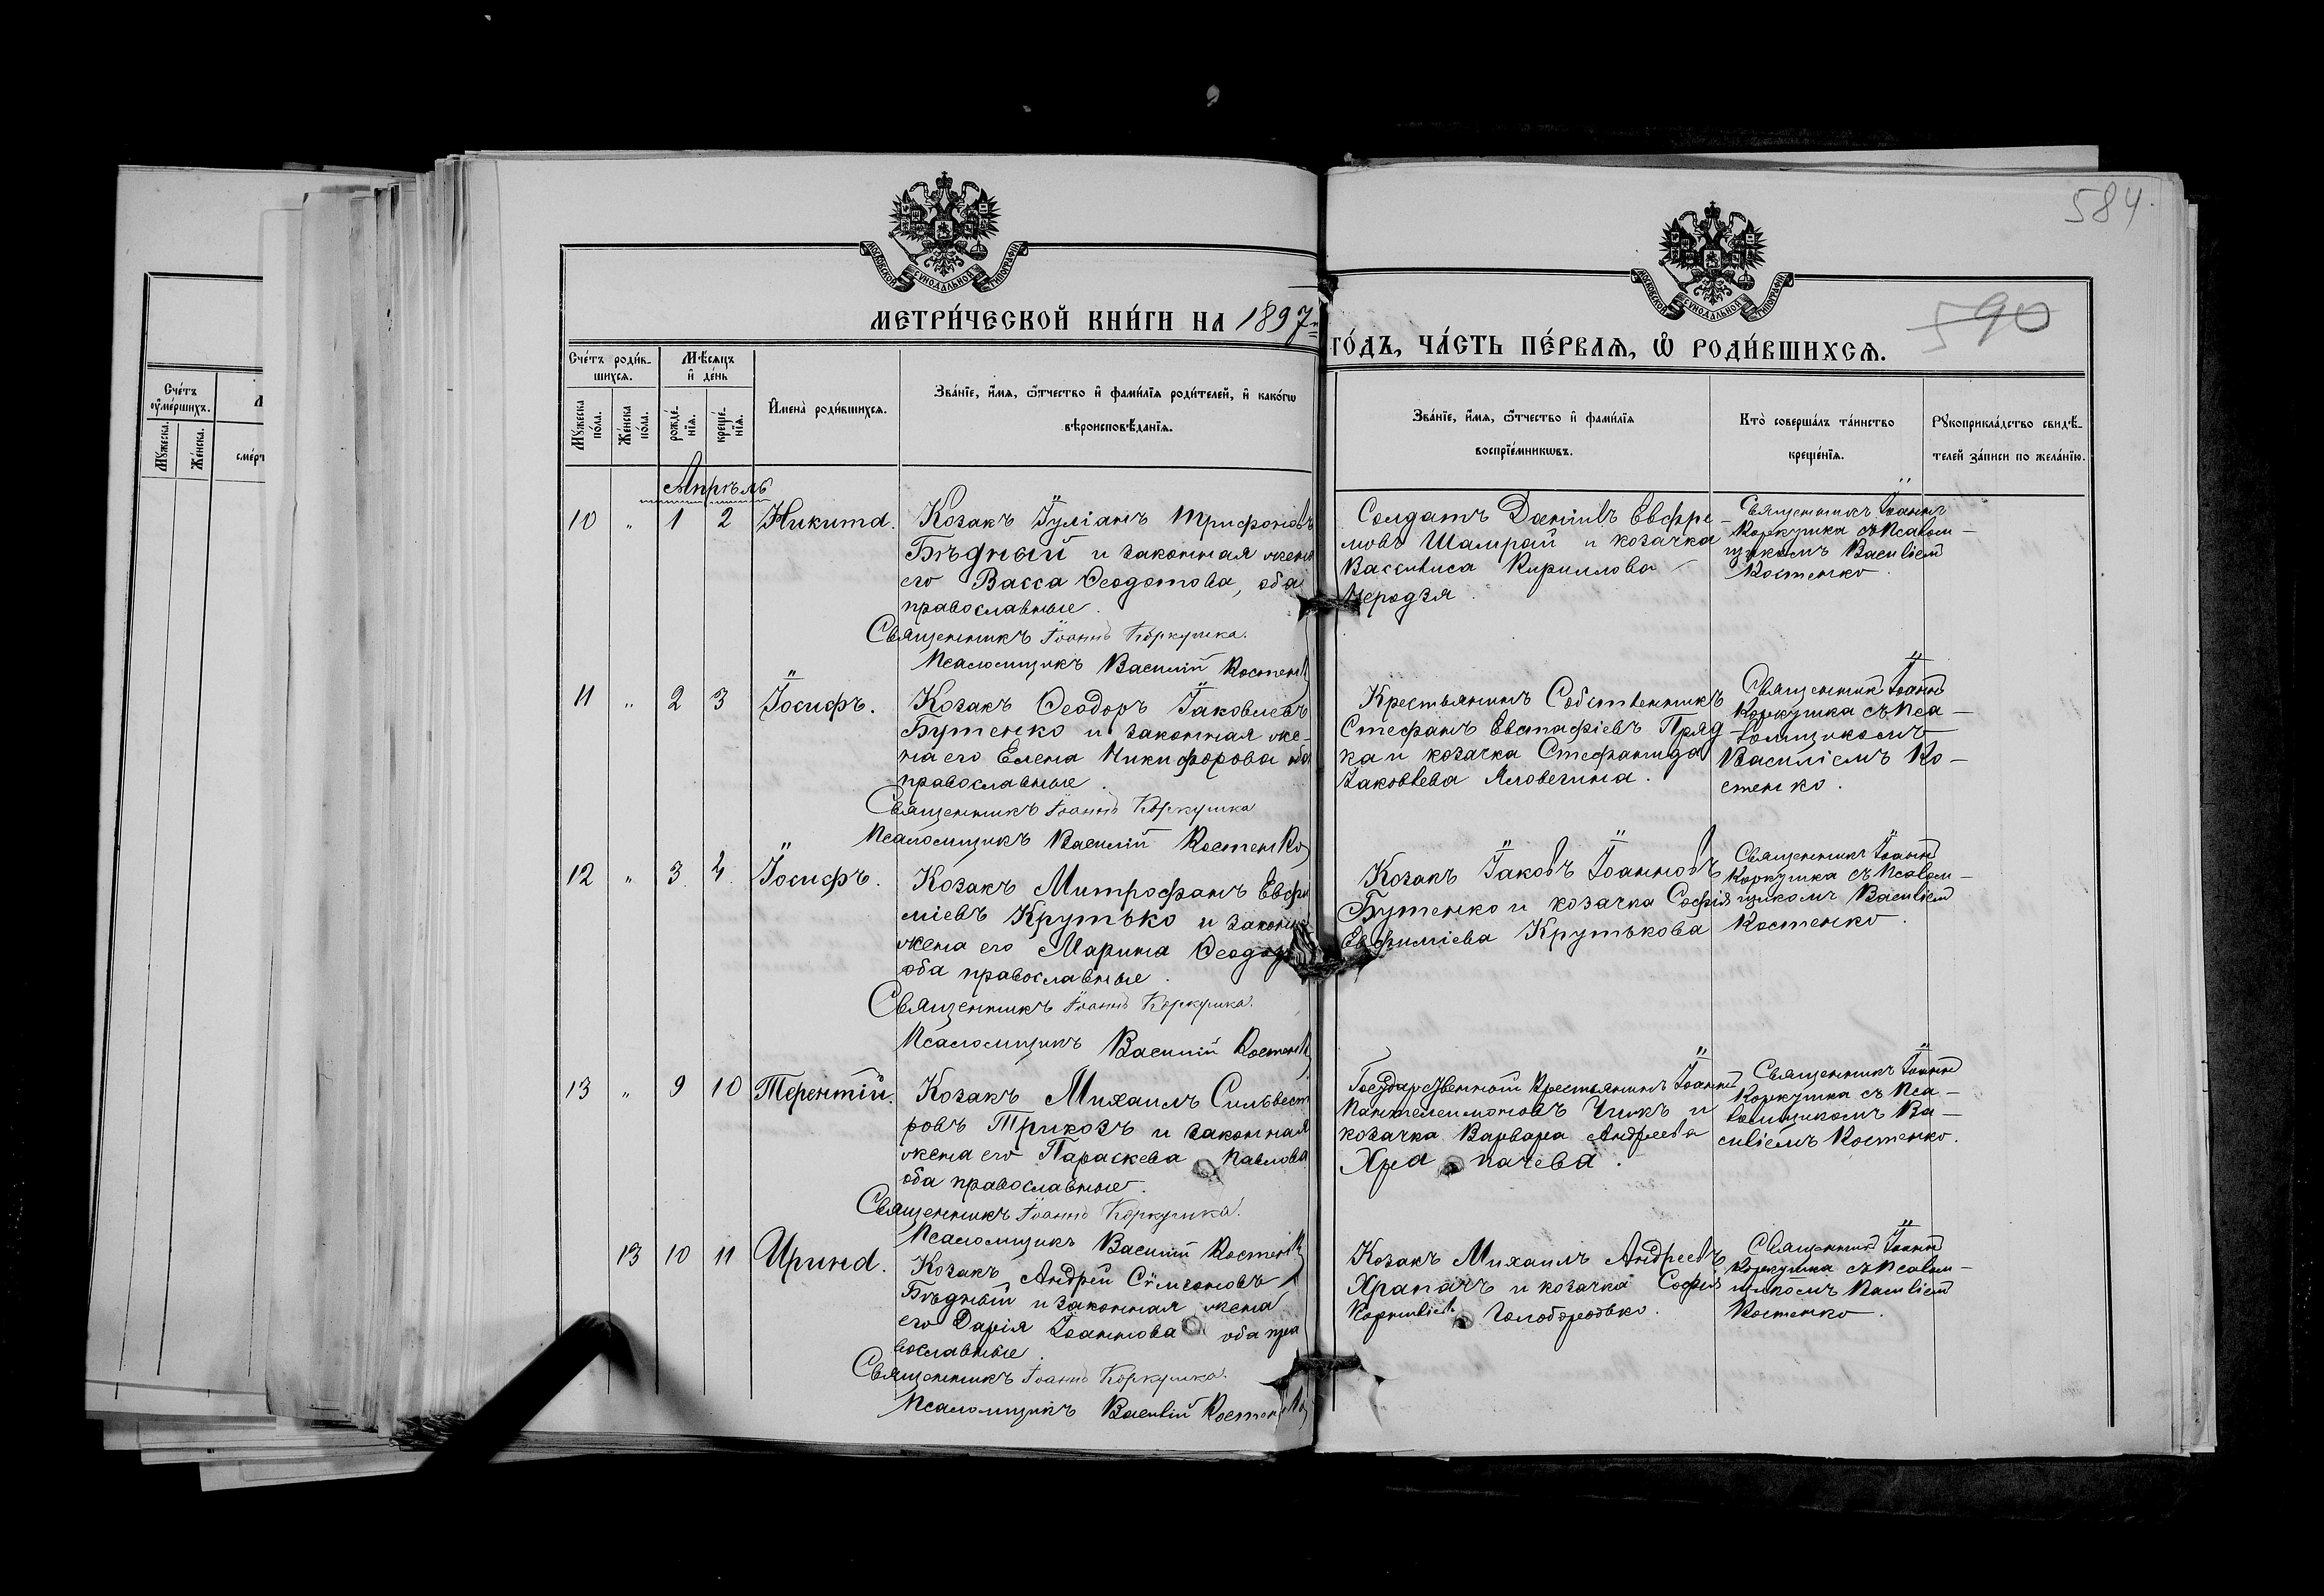 584
590
МОСКОВСКОЙ СѴНОДАЛЬНОЙ ТИПОГРАФІИ
МОСКОВСКОЙ СѴНОДАЛЬНОЙ ТИПОГРАФІИ
МЕТРИ́ЧЕСКОЙ КНИ́ГИ НА 1897й
ГО́ДЪ, ЧА́СТЬ ПЕ́РВАѦ, Ѡ҆ РОДИ́ВШИХСѦ.
Сче́тъ
оу҆ме́ршихъ.
Мꙋ́жеска.
Же́нска.
Сче́тъ роди́в-
шихсѧ.
Мꙋ́жеска
по́ла.
Же́нска
по́ла.
Мѣ́сѧцъ
и҆ де́нь
рожде́-
нїѧ.
креще́-
нїѧ.
И҆мена̀ роди́вшихсѧ.
Зва́нїе, и҆́мѧ, ѻ҆́тчество и҆ фами́лїѧ роди́телей, и҆ како́гѡ
вѣроисповѣ́данїѧ.
Зва́нїе, и҆́мѧ, ѻ҆́тчество и҆ фами́лїѧ
воспрїе́мникѡвъ.
Кто̀ соверша́лъ та́инство
креще́нїѧ.
Рꙋкоприкла́дство свидѣ́-
телей за́писи по жела́нїю.
Апрѣль
10 " 1 2 Никита.
Козакъ Іуліанъ Трифоновъ
Бѣдный и законная жена
его Васса Ѳеодотова, оба
православные.
Священникъ Іоаннъ Коркушка.
Псаломщикъ Василій Костенк
Солдатъ Даніилъ Евфре-
мовъ Шамрай и козачка
Вассилиса Кириллова
Чередзя.
Священникъ Іоаннъ
Коркушка съ Псалом-
щикомъ Василіем
Костенко.
11 " 2 3 Іосифъ.
Козакъ Ѳеодоръ Іаковлевъ
Бутенко и законная же-
на его Елена Никифорова оба
православные.
Священникъ Іоаннъ Коркушка
Псаломщикъ Василій Костенко
Крестьянинъ Собственникъ
Стефанъ Евстафіевъ Пряд-
ка и козачка Стефанида
Іаковлева Яловегина.
Священник Іоаннъ
Коркушка съ Пса-
ломщикомъ
Василіемъ Ко-
стенко.
12 " 3 4 Іосифъ.
Козакъ Митрофанъ Евфи
міевъ Крутько и законная
жена его Марина Ѳеодор
оба православные.
Священникъ Іоаннъ Коркушка.
Псаломщикъ Василій Костенк
Козакъ Іаковъ Іоанновъ
Бутенко и козачка Софія
Евфиміева Крутькова
Священникъ Іоаннъ
Коркушка съ Псалом-
щикомъ Василіем
Костенко.
13 " 9 10 Терентій.
Козакъ Михаилъ Сильвест
ровъ Трикозъ и законная
жена его Параскева Павлова
оба православные.
Священникъ Іоаннъ Коркушка.
Псаломщикъ Василій Костенк
Государственной Крестьянинъ Іоаннъ
Пантелеимоновъ Чикъ и
козачка Варвара Андреева
Храпачева.
Священникъ Іоаннъ
Коркушка съ Пса-
ломщикомъ Ва-
силіемъ Костенко.
13 10 11 Ирина.
Козакъ Андрей Сѵмеоновъ
Бѣдный и законная жена
его Дарія Іоаннова оба пра
вославные.
Священникъ Іоаннъ Коркушка.
Псаломщикъ Василій Костенко
Козакъ Михаилъ Андреевъ
Храпачъ и козачка Софія
Корниліев Голобородько.
Священникъ Іоаннъ
Коркушка съ Псалом-
щикомъ Василіем
Костенко.